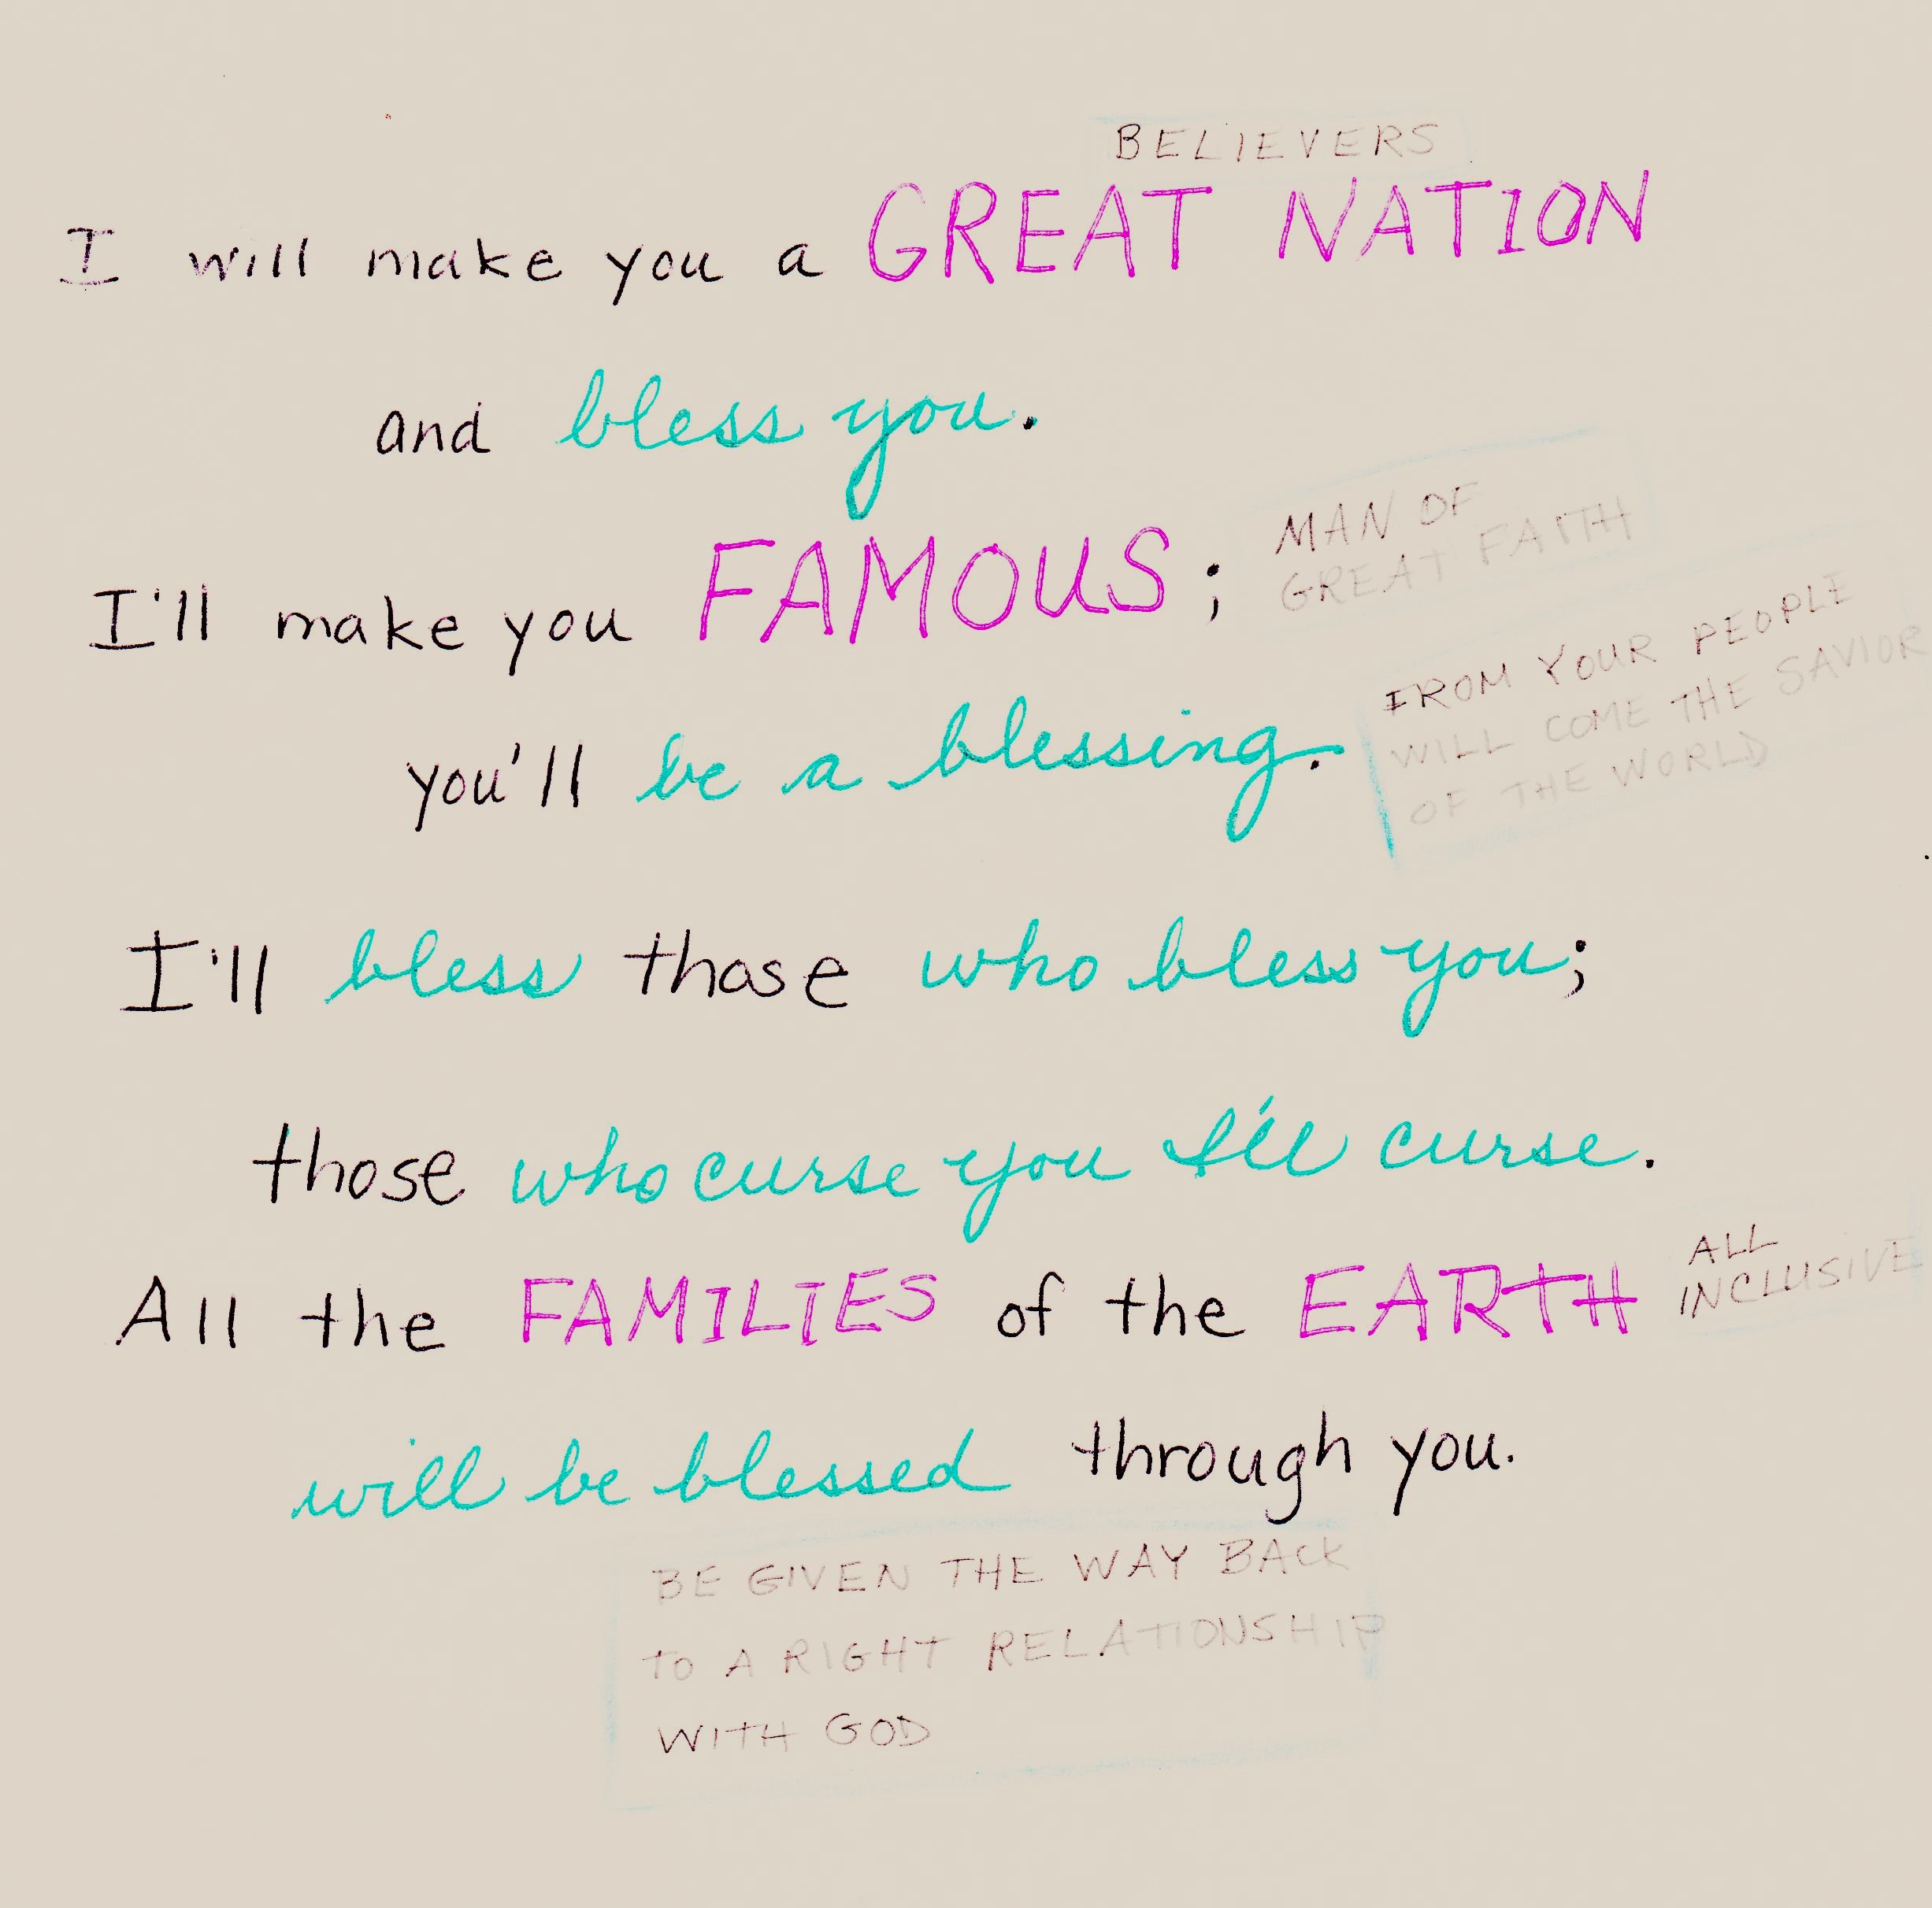 BELIEVERS
I will make you a GREAT NATION
and bless you.
I'll make you FAMOUS;
MAN OF
GREAT FAITH
you'll be a blessing.
FROM YOUR PEOPLE
WILL COME THE SAVIOR
OF THE WORLD
I'll bless those who bless you;
those who curse you I'll curse.
All the FAMILIES of the EARTH
ALL
INCLUSIVE
will be blessed through you.
BE GIVEN THE WAY BACK
TO A RIGHT RELATIONSHIP
WITH GOD